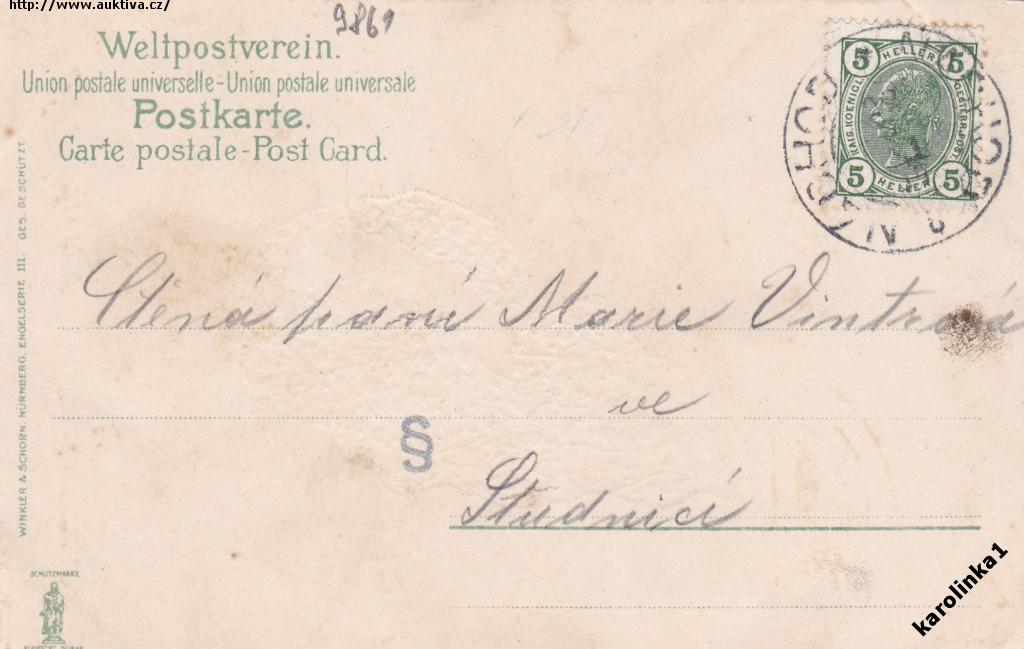 http://www.auktiva.cz/
9861
Weltpostverein.
Union postale universelle-Union postale universale
Postkarte.
Carte postale-Post Card.
5 HELLER 5
KAIS. KOENIGL. OESTERR. POST
5 HELLER 5
NACHOD NÁCHOD
WINKLER & SCHORN, NÜRNBERG, ENGELSERIE III. GES. GESCHÜTZT.
Ctená paní Marie Vintrová
ve
§
Studnici
SCHUTZMARKE
karolinka1